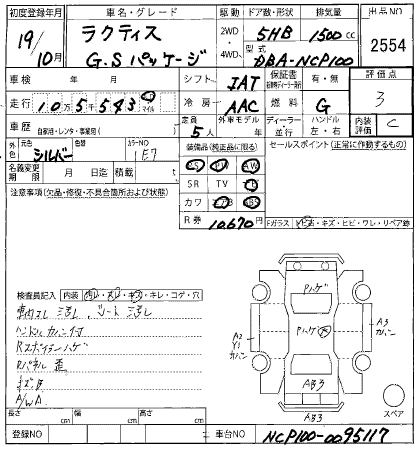 初度登録年月 車名・グレード 駆動 ドア数・形状 排気量 出品NO
19/10月 ラクティス G.Sパッケージ 2WD・4WD 5HB 1500cc 2554
型式 DBA-NCP100
車検 年 月 シフト IAT 保証書 有・無 評価点 3
走行 10万5千543 マイル 冷房 AAC 燃料 G
車歴 自家用・レンタ・事業用( ) 定員 5人 外車モデル 年 ディーラー・並行 ハンドル 左・右 内装評価 C
外色 元色 シルバー 色替 カラーNO 1E7 装備品(純正品に限る) セールスポイント(正常に作動するもの)
名義変更期限 月 日迄 積載 t PS PW AW
注意事項(欠品・修復・不具合箇所および状態) SR TV
カワ エアB ABS
R券 10,670円 Fガラス トビ石・キズ・ヒビ・ワレ・リペア跡
検査員記入 内装 汚レ・スレ・キズ・キレ・コゲ・穴
車内コレ 汚レ、シート 汚レ
ハンドルカバー付
Rスポイラーハゲ
Rパネル 歪
キズ、B
A/W A
Pハゲ
Pハゲ
A2
Y1
カハン
A3
カハン
AB3
AB3
スペア
長さ cm 幅 cm 高さ cm
登録NO 車台NO NCP100-0095117